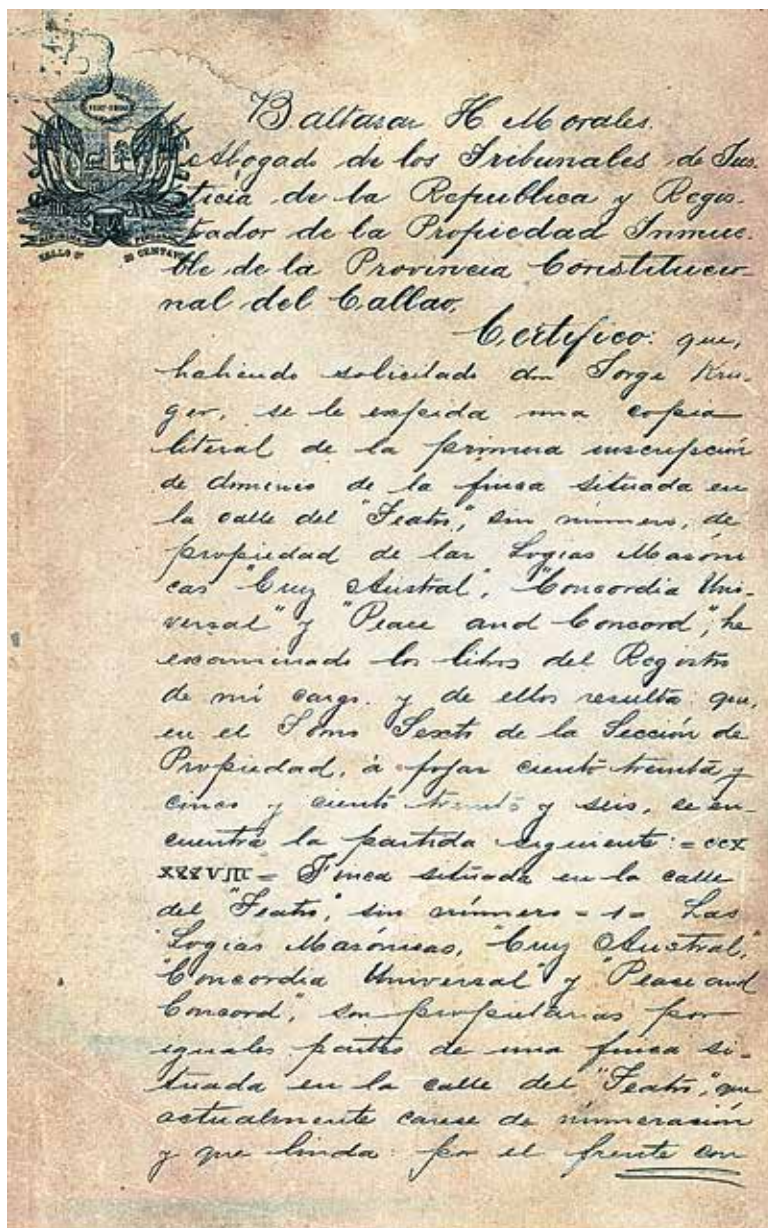 SELLO 6º 20 CENTAVOS
Baltasar H Morales.
Abogado de los Tribunales de Jus-
ticia de la Republica y Regis-
trador de la Propiedad Inmue-
ble de la Provincia Constitucio-
nal del Callao.
Certifico: que,
habiendo solicitado don Jorge Kru-
ger, se le expida una copia
literal de la primera inscripción
de dominio de la finca situada en
la calle del "Teatro", sin número, de
propiedad de las Logias Masóni
cas "Cruz Austral", "Concordia Uni-
versal" y "Peace and Concord"; he
examinado los libros del Registro
de mi cargo. y de ellos resulta: que,
en el Tomo Sexto de la Sección de
Propiedad, á fojas ciento treinta y
cinco y ciento treinta y seis, se en-
cuentra la partida siguiente: = CCX
XXXVIII = Finca situada en la calle
del "Teatro", sin número = 1 = Las
Logias Masónicas, "Cruz Austral,"
"Concordia Universal" y "Peace and
Concord", son propietarias por
iguales partes de una finca si-
tuada en la calle del "Teatro", que
actualmente carese de numeración
y que linda: por el frente con